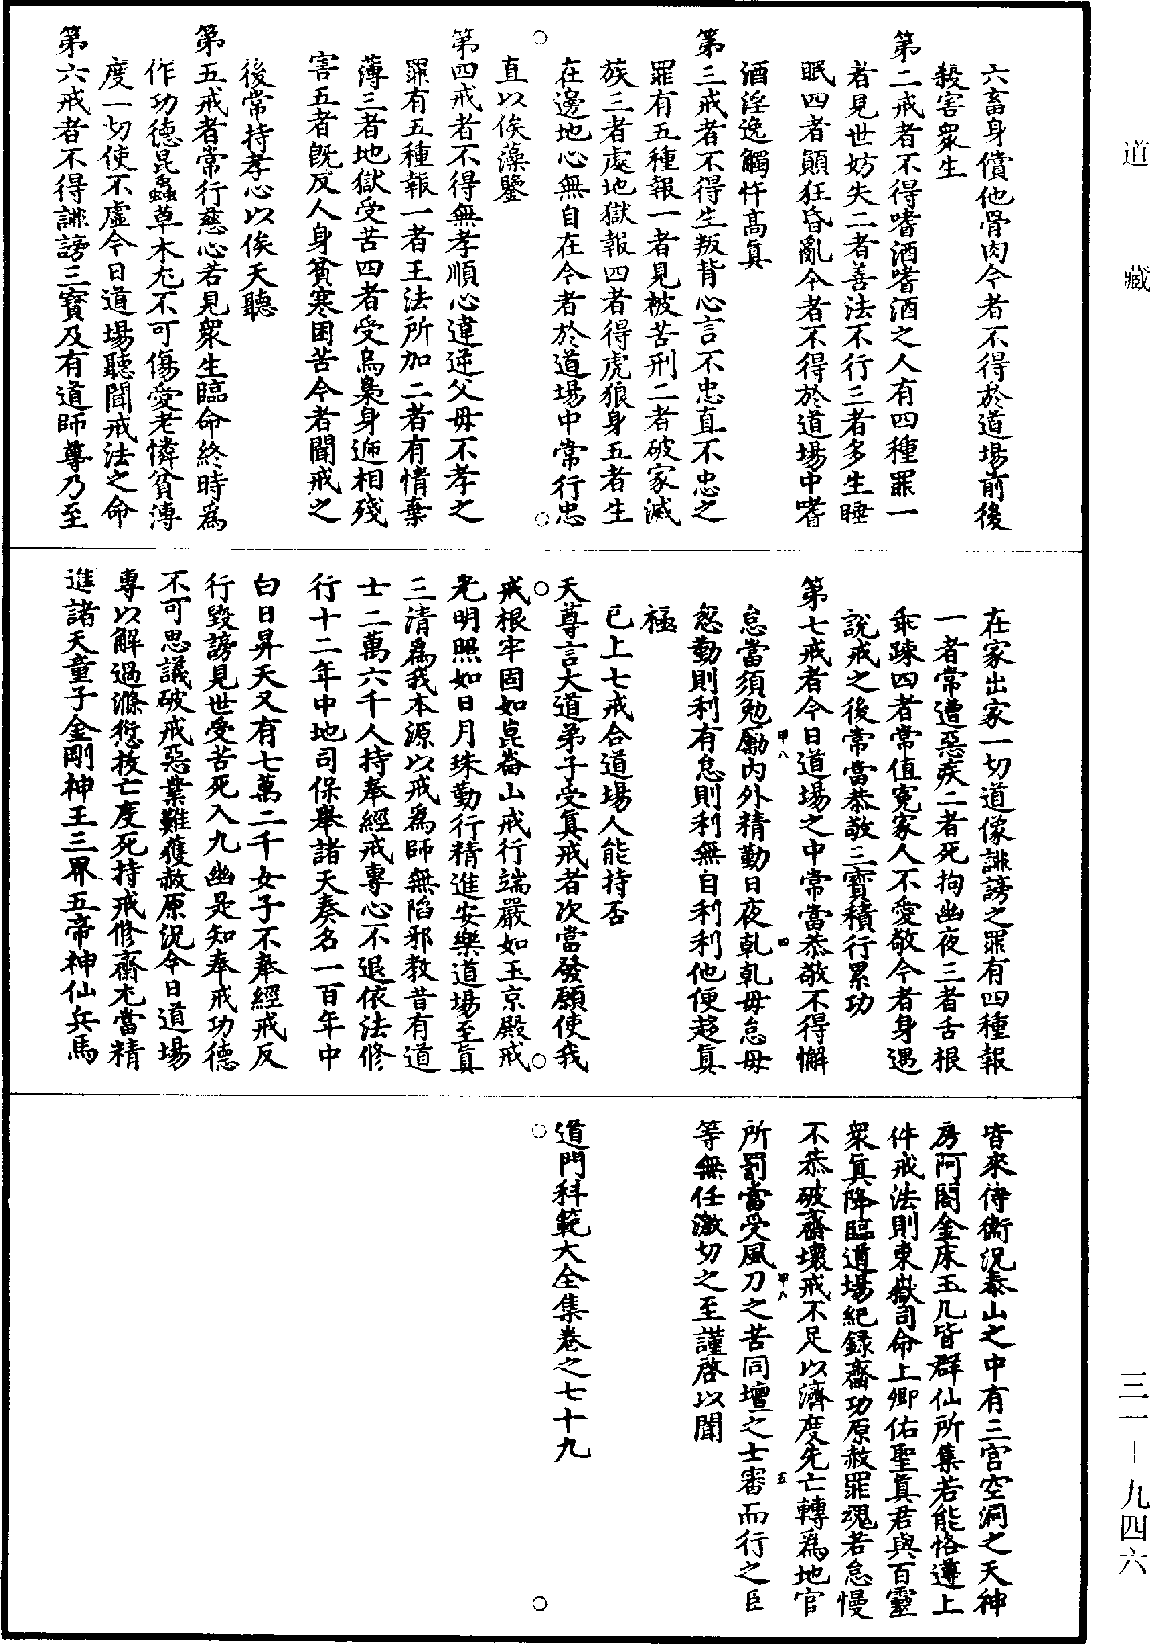 道藏
六畜身償他骨肉今者不得於道場前後
殺害衆生
第二戒者不得嗜酒嗜酒之人有四種罪一
者見世妨失二者善法不行三者多生睡
眠四者顛狂昏亂今者不得於道場中嗜
酒淫逸觸忤高真
第三戒者不得生叛背心言不忠直不忠之
罪有五種報一者見被苦刑二者破家滅
族三者處地獄報四者得虎狼身五者生
在邊地心無自在今者於道場中常行忠
直以俟藻鑒
第四戒者不得無孝順心違逆父母不孝之
罪有五種報一者王法所加二者有情棄
薄三者地獄受苦四者受烏梟身遞相殘
害五者旣反人身貧寒困苦今者聞戒之
後常持孝心以俟天聽
第五戒者常行慈心若見衆生臨命終時爲
作功德昆蟲草木尤不可傷愛老憐貧溥
度一切使不虛今日道場聽聞戒法之命
第六戒者不得誹謗三寶及有道師尊乃至
在家出家一切道像誹謗之罪有四種報
一者常遭惡疾二者死拘幽夜三者舌根
乖疎四者常值寃家人不愛敬今者身遇
說戒之後常當恭敬三寶積行累功
第七戒者今日道場之中常當恭敬不得懈
怠當須勉勵内外精勤日夜乹乹毋怠毋
忽勤則利有怠則利無自利利他便超真
極
已上七戒合道場人能持否
天尊言大道弟子受真戒者次當發願使我
戒根牢固如崑崙山戒行端嚴如玉京殿戒
光明照如日月珠勤行精進安樂道場至真
三清爲我本源以戒爲師無陷邪教昔有道
士二萬六千人持奉經戒專心不退依法修
行十二年中地司保舉諸天奏名一百年中
白日昇天又有七萬二千女子不奉經戒反
行毀謗見世受苦死入九幽是知奉戒功德
不可思議破戒惡業難獲赦原況今日道場
專以解過滌愆拔亡度死持戒修齋尤當精
進諸天童子金剛神王三界五帝神仙兵馬
皆來侍衛況泰山之中有三宫空洞之天神
房阿閣金床玉几皆群仙所集若能恪遵上
件戒法則東嶽司命上卿佑聖真君與百靈
衆真降臨道場紀録齋功原赦罪魂若怠慢
不恭破齋壞戒不足以濟度先亡轉爲地官
所罰當受風刀之苦同壇之士審而行之臣
等無任激切之至謹啓以聞
道門科範大全集卷之七十九
甲八
四
甲八
五
三一－九四六